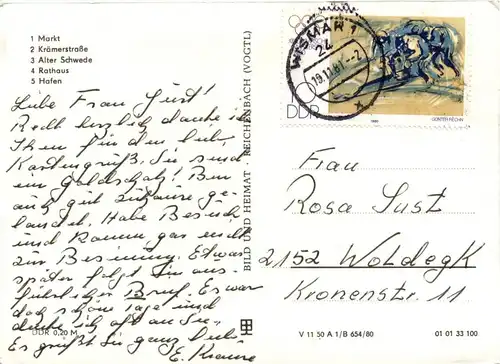 1 Markt
2 Krämerstraße
3 Alter Schwede
4 Rathaus
5 Hafen
Liebe Frau Just!
Recht herzlich danke ich
Ihnen für den lieb.
Kartengruß. Sie sind
ein Goldschatz! Bin
auch gut zuhause ge-
landet. Habe Besuch
und komme gar nicht
zur Besinnung. Etwas
später folgt ein aus-
führlicher Brief. Es war
doch schön diese Tage und
denke ich oft an Sie.
Es grüßt Sie ganz lieb
E. Krause
DDR 0,20 M
BILD UND HEIMAT · REICHENBACH (VOGTL)
WISMAR 1
24
DDR
1980
GÜNTER RECHN
Frau
Rosa Just
2152 Woldegk
Kronenstr. 11
V 11 50 A 1/B 654/80
01 01 33 100